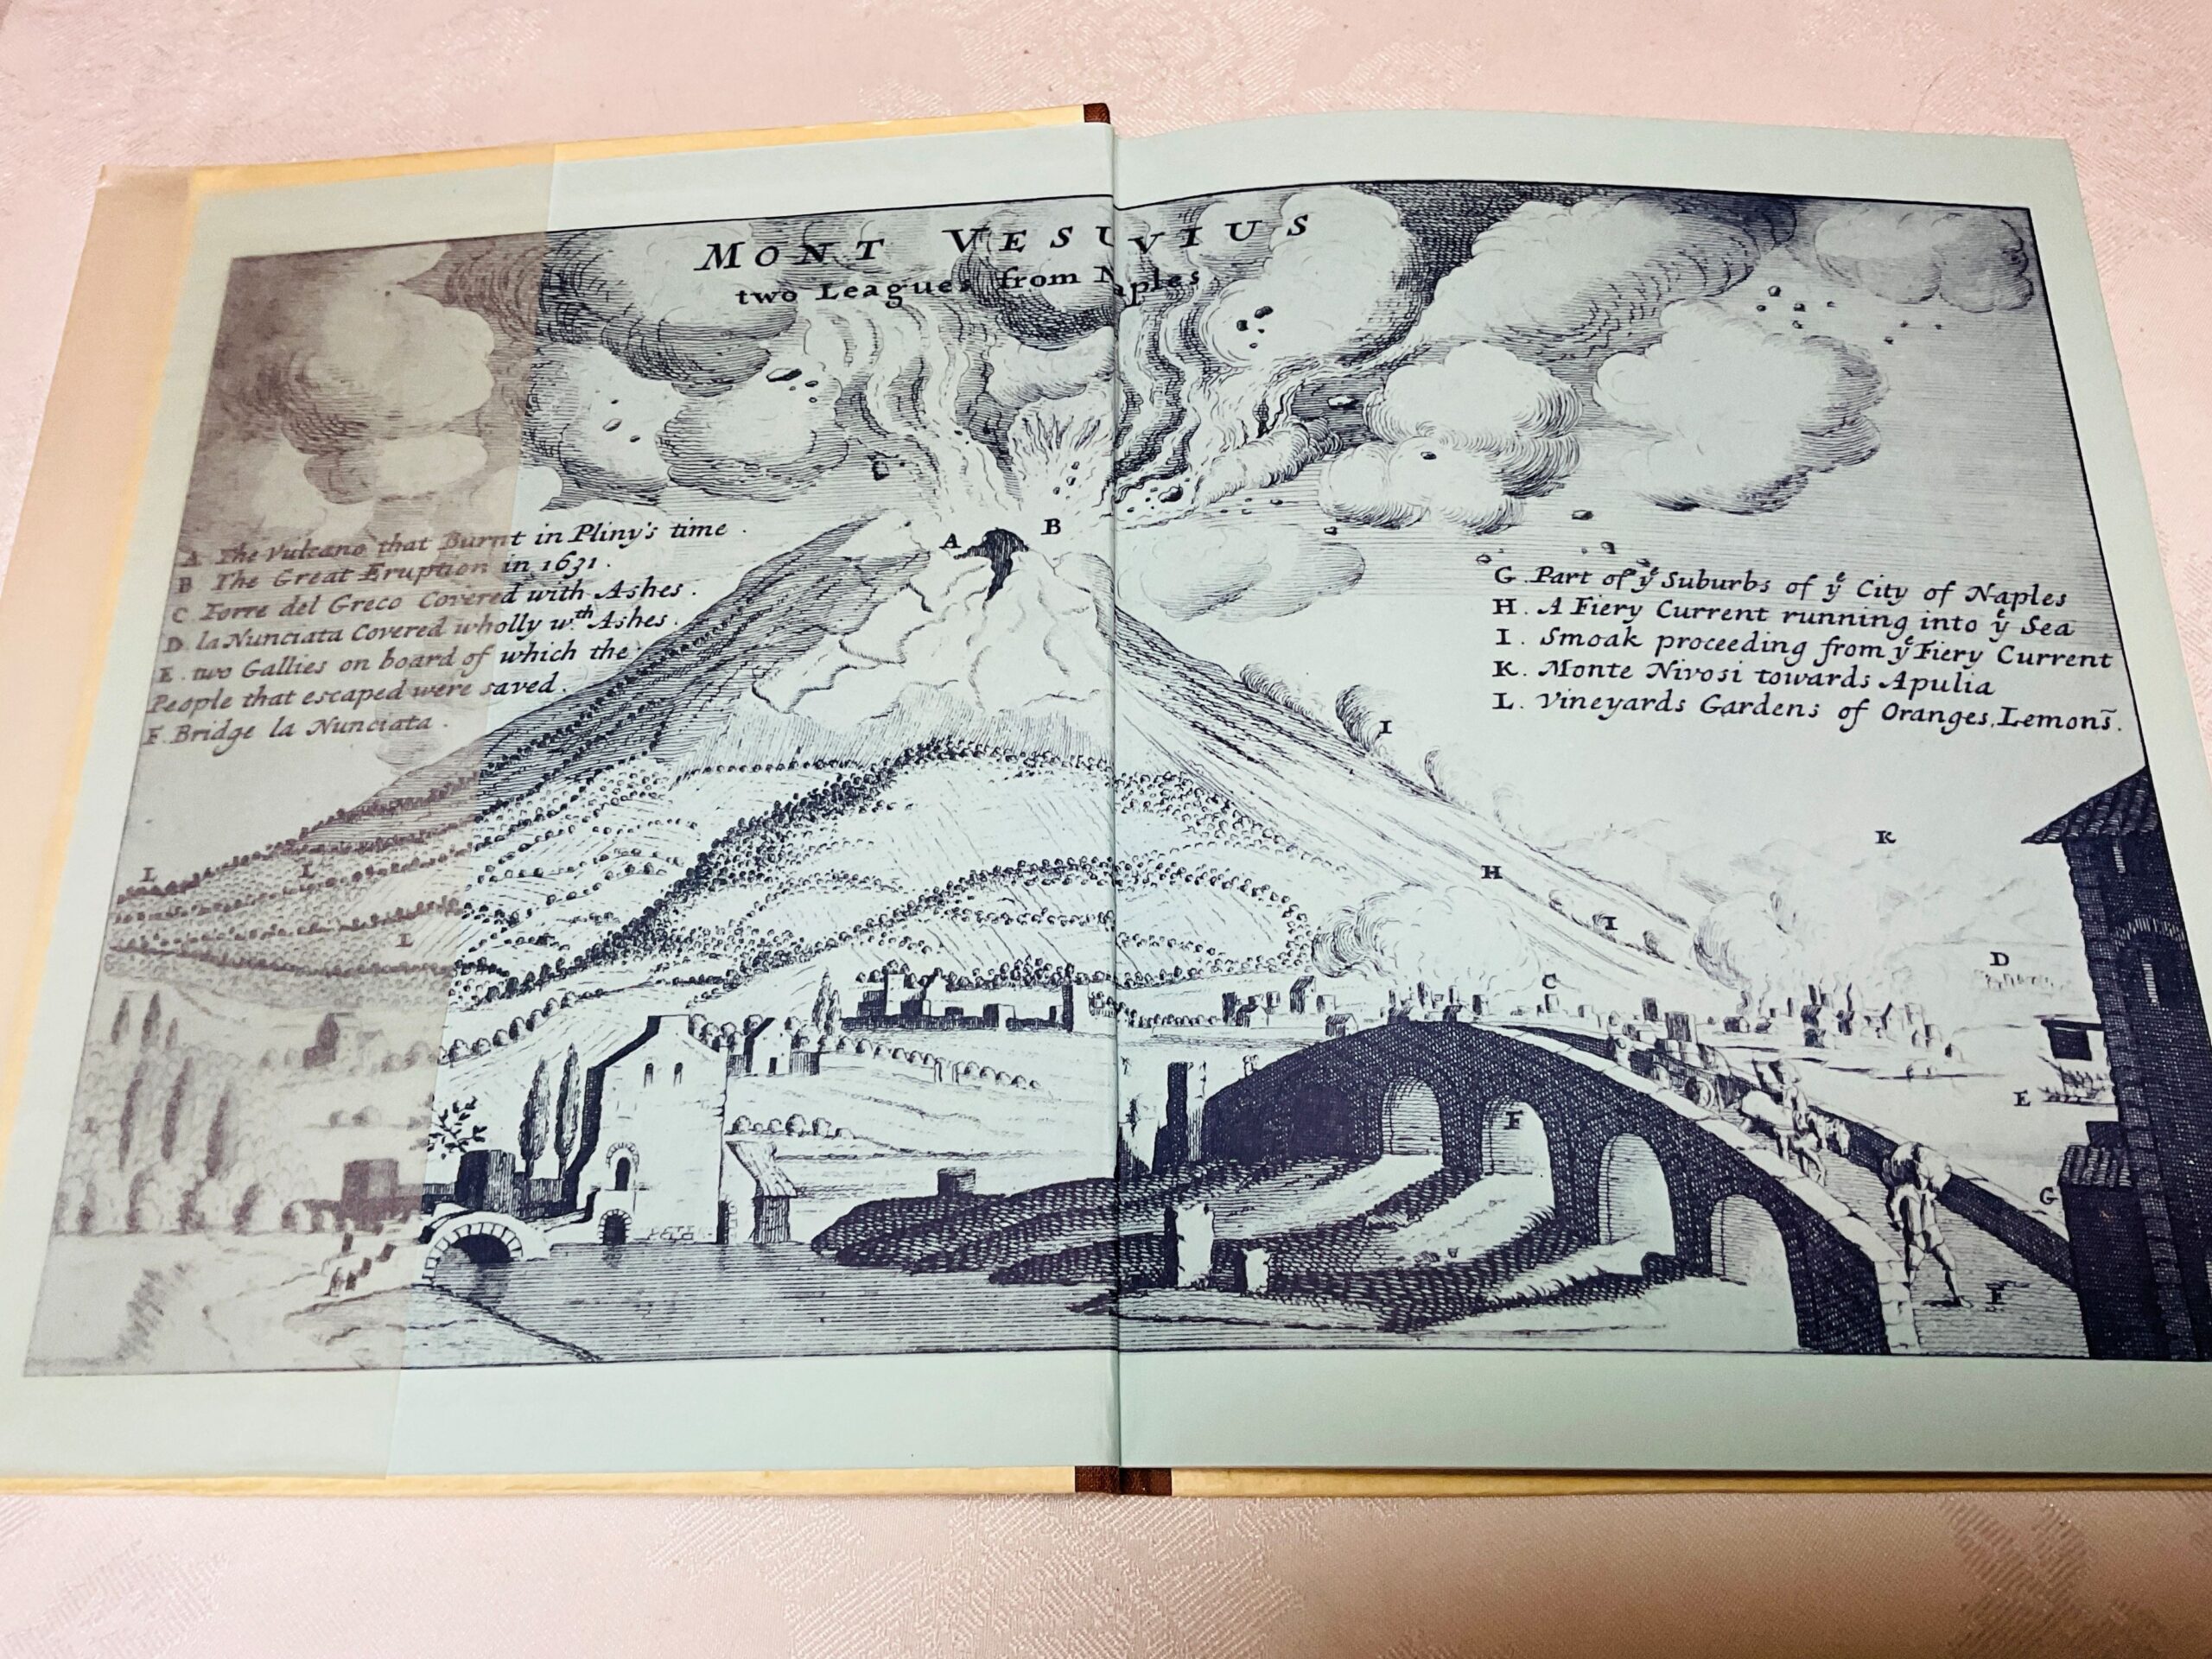 MONT VESUVIUS
two Leagues from Naples
A The Vulcano that Burnt in Pliny's time .
B The Great Eruption in 1631 .
C Torre del Greco Covered with Ashes .
D la Nunciata Covered wholly wth Ashes .
E . two Gallies on board of which the
People that escaped were saved .
F . Bridge la Nunciata .
G . Part of ye Suburbs of ye City of Naples
H . A Fiery Current running into ye Sea
I . Smoak proceeding from ye Fiery Current
K . Monte Nivosi towards Apulia
L . Vineyards Gardens of Oranges, Lemons̃ .
A
B
I
K
L
L
H
I
L
D
C
E
F
G
F